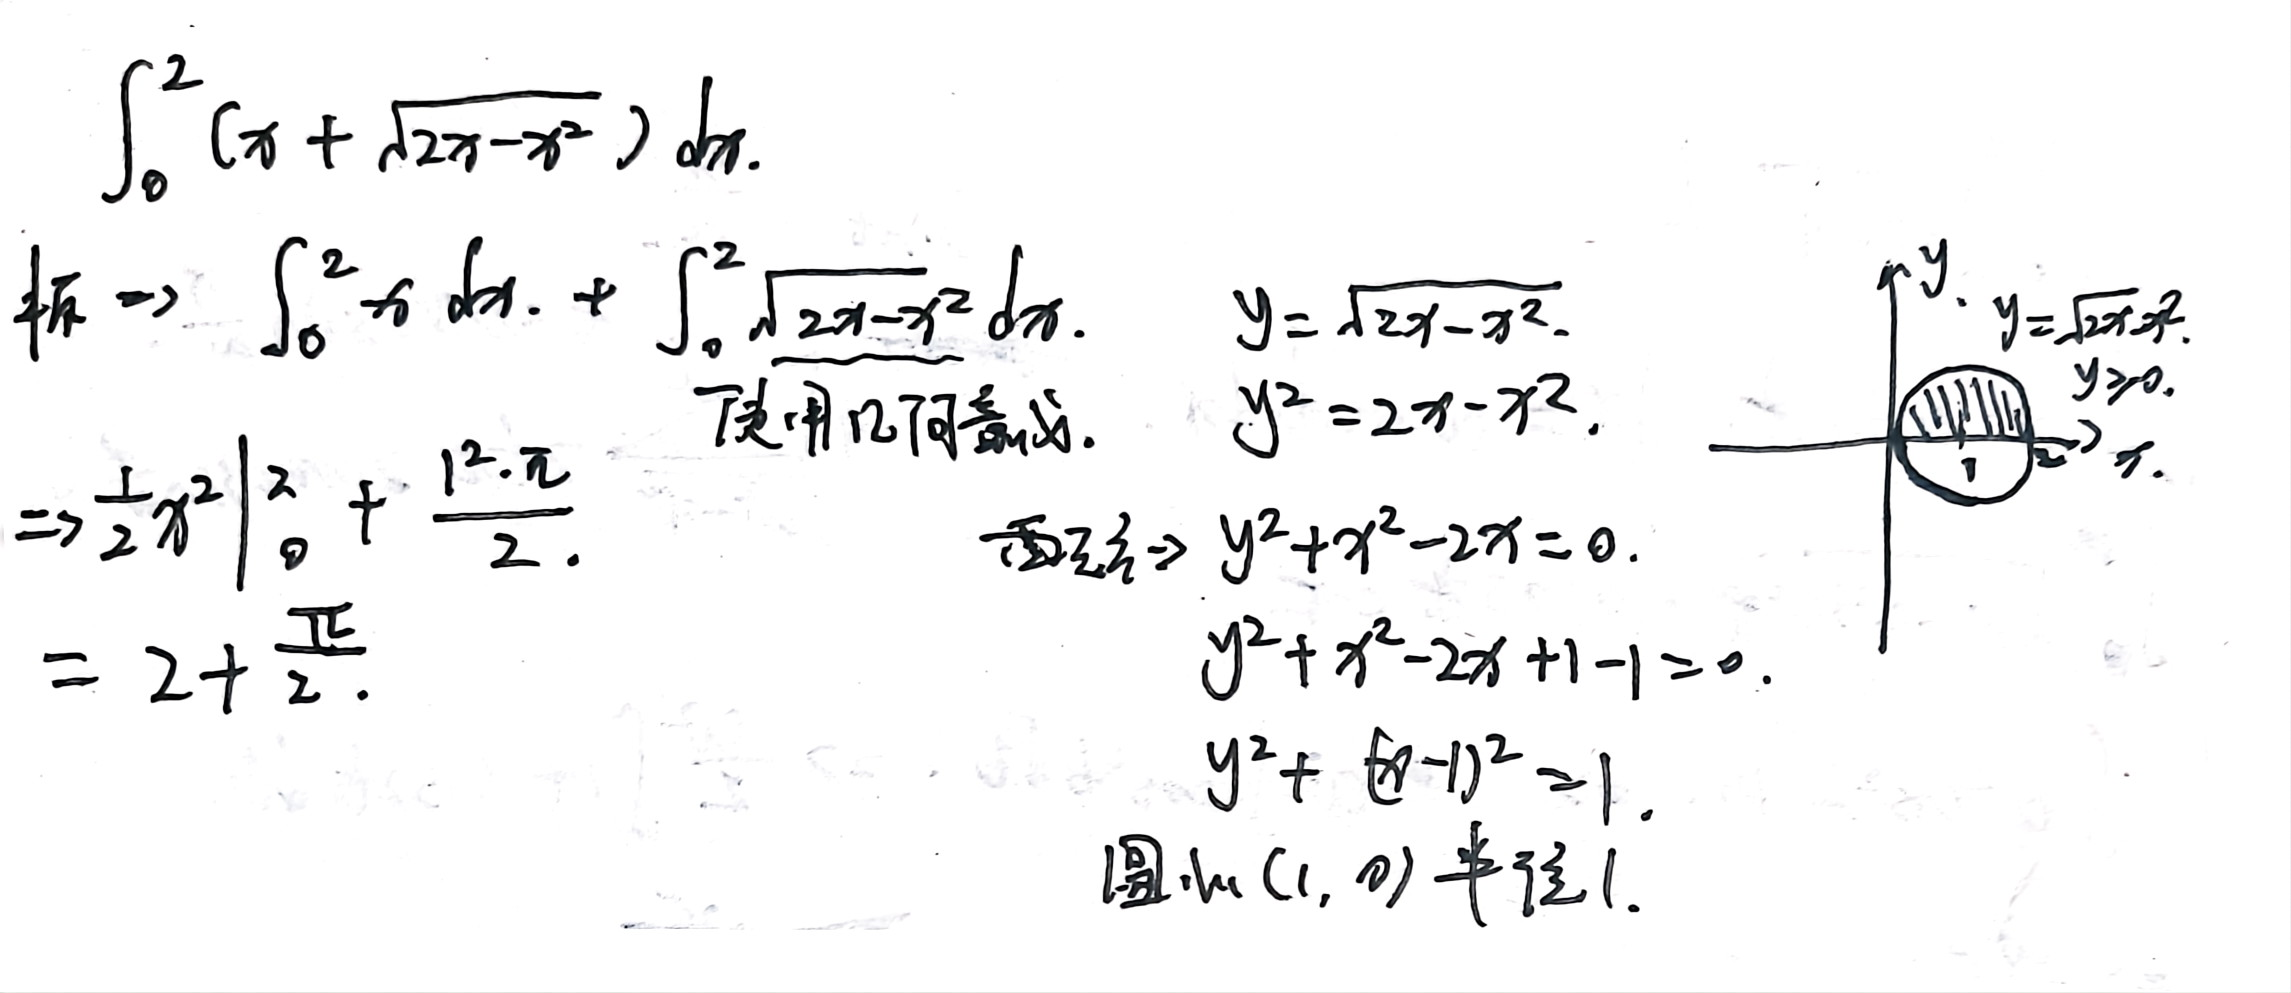 ∫₀² (x + √(2x-x²)) dx.
拆 => ∫₀² x dx. + ∫₀² √(2x-x²) dx.
使用几何意义.
=> 1/2 x² |₀² + 1²·π/2.
= 2 + π/2.
y = √(2x-x²).
y² = 2x-x².
配方 => y²+x²-2x=0.
y²+x²-2x+1-1=0.
y²+(x-1)²=1.
圆心(1, 0) 半径1.
y.
y=√(2x-x²).
y≥0.
1
2
x.